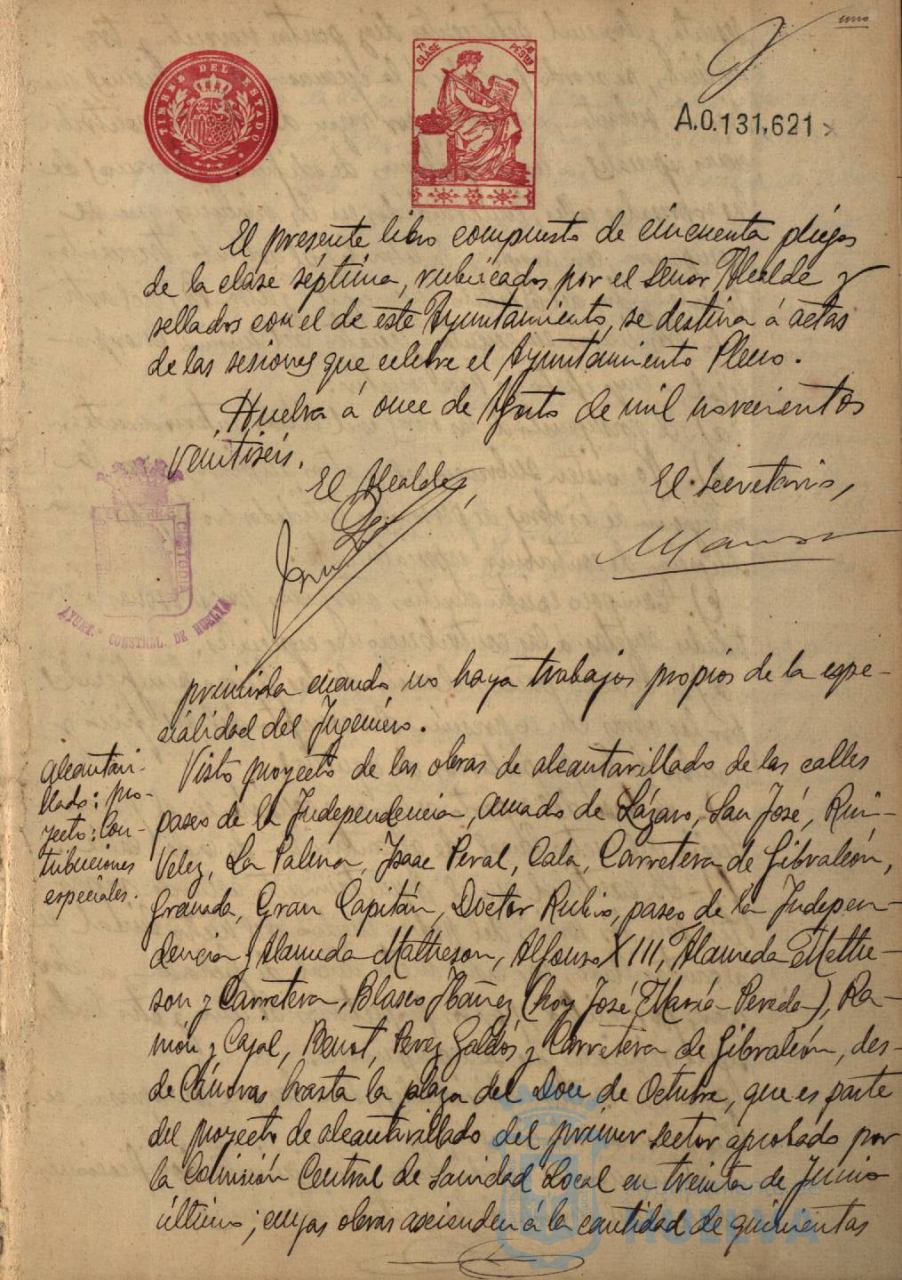 uno
TIMBRE DEL ESTADO
7ª CLASE
A.0.131,621
El presente libro compuesto de cincuenta pliegos
de la clase séptima, rubricados por el señor Alcalde y
sellados con el de este Ayuntamiento, se destina á actas
de las sesiones que celebre el Ayuntamiento Pleno.
Huelva á once de Agosto de mil novecientos
veintiseis.
El Alcalde,
El Secretario,
CUSTODIA
AYUNT. CONSTNAL. DE HUELVA
primida cuando no haya trabajos propios de la espe-
cialidad del Ingeniero.
Alcantari-
llado: pro-
yecto: Con-
tribuciones
especiales.
Visto proyecto de las obras de alcantarillado de las calles
paseo de la Independencia, Amado de Lázaro, San José, Ruiz
Velez, La Palma, Isaac Peral, Cala, Carretera de Gibraleón,
Granada, Gran Capitán, Doctor Rubio, paseo de la Indepen-
dencia y Alameda Matheson, Alfonso XIII, Alameda Mathe-
son y Carretera, Blasco Ibáñez (hoy José María Pereda), Ra-
món y Cajal, Benot, Perez Galdós y Carretera de Gibraleón, des-
de Cánovas hasta la plaza del Doce de Octubre, que es parte
del proyecto de alcantarillado del primer sector aprobado por
la Comisión Central de Sanidad Local en treinta de Junio
último; cuyas obras ascienden á la cantidad de quinientas
HUELVA